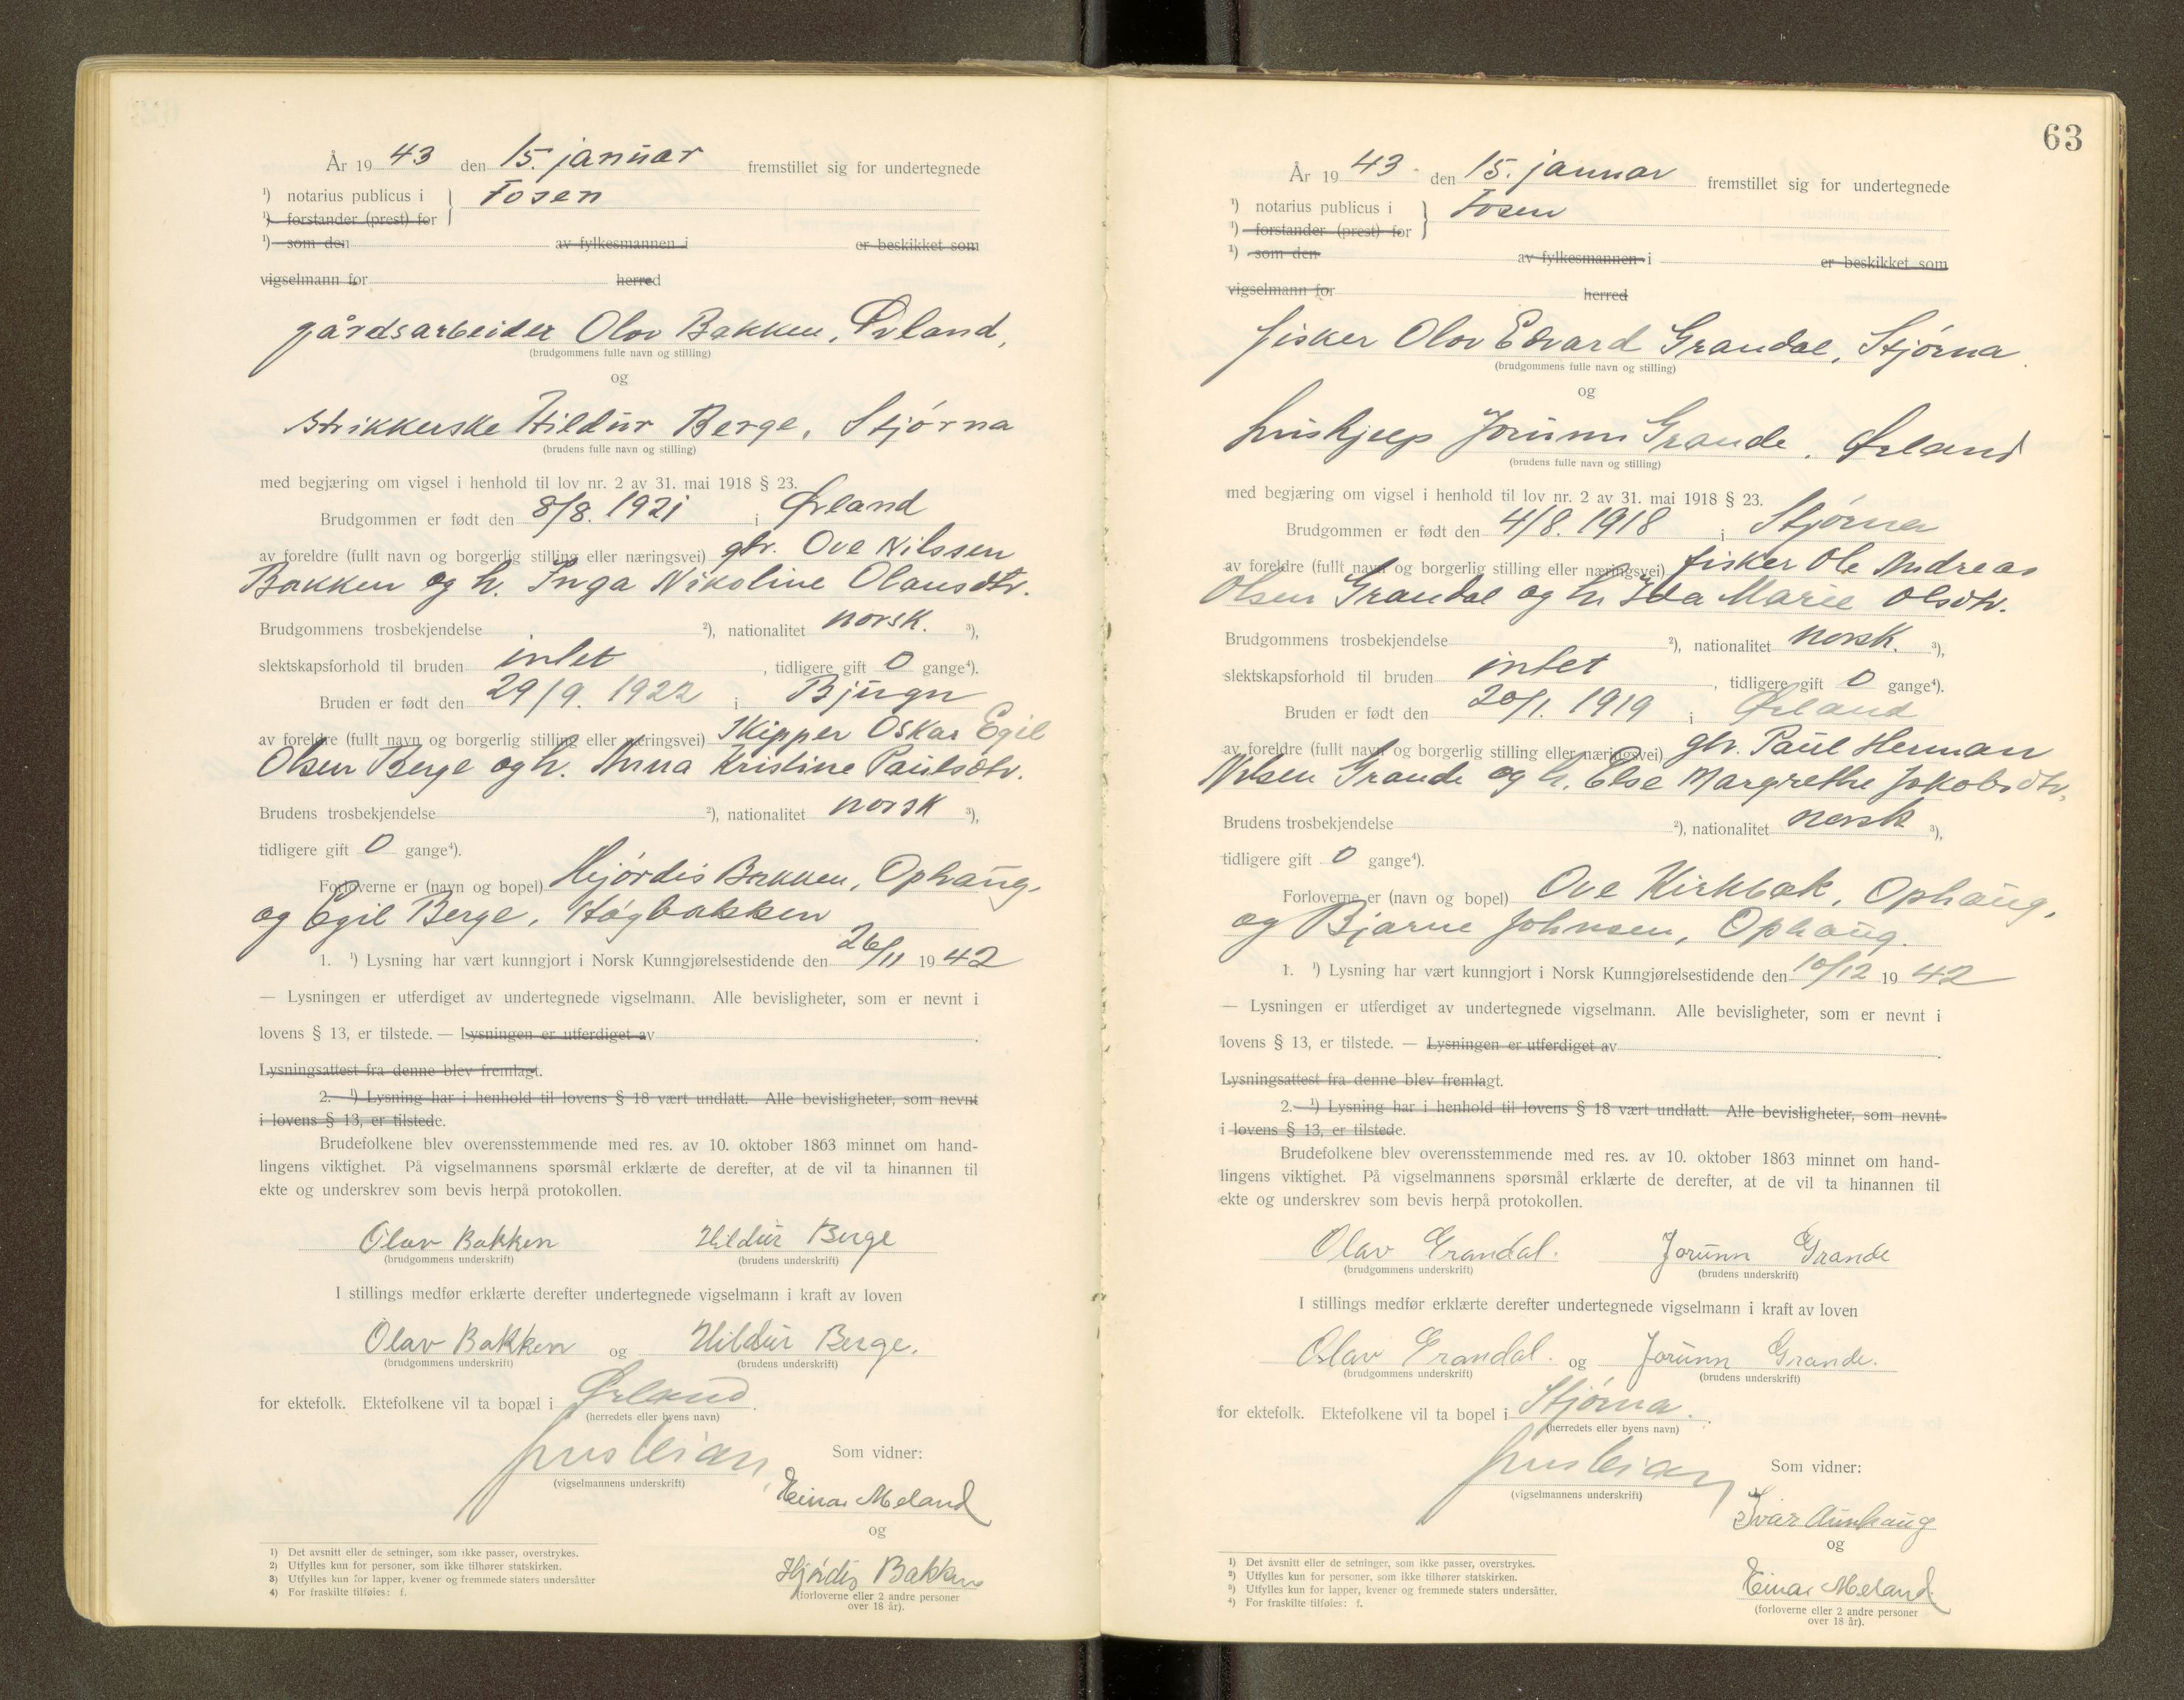 År 19 43 den 15. januar fremstillet sig for undertegnede
¹) notarius publicus i } Fosen
¹) forstander (prest) for
¹) som den av fylkesmannen i er beskikket som
vigselmann for herred
gårdsarbeider Olav Bakken, Ørland,
(brudgommens fulle navn og stilling)
og
strikkerske Hildur Berge, Stjørna
(brudens fulle navn og stilling)
med begjæring om vigsel i henhold til lov nr. 2 av 31. mai 1918 § 23.
Brudgommen er født den 8/8. 1921 i Ørland
av foreldre (fullt navn og borgerlig stilling eller næringsvei) gbr. Ove Nilssen
Bakken og h. Inga Nikoline Olausdtr.
Brudgommens trosbekjendelse ²), nationalitet norsk. ³),
slektskapsforhold til bruden intet, tidligere gift 0 gange⁴).
Bruden er født den 29/9. 1922 i Bjugn
av foreldre (fullt navn og borgerlig stilling eller næringsvei) skipper Oskar Egil
Olsen Berge og h. Anna Kristine Paulsdtr.
Brudens trosbekjendelse ²), nationalitet norsk ³),
tidligere gift 0 gange⁴).
Forloverne er (navn og bopel) Hjørdis Bakken, Ophaug,
og Egil Berge, Høgbakken
1. ¹) Lysning har vært kunngjort i Norsk Kunngjørelsestidende den 26/11 19 42
— Lysningen er utferdiget av undertegnede vigselmann. Alle bevisligheter, som er nevnt i
lovens § 13, er tilstede. — Lysningen er utferdiget av .
Lysningsattest fra denne blev fremlagt.
2. ¹) Lysning har i henhold til lovens § 18 vært undlatt. Alle bevisligheter, som nevnt
i lovens § 13, er tilstede.
Brudefolkene blev overensstemmende med res. av 10. oktober 1863 minnet om hand-
lingens viktighet. På vigselmannens spørsmål erklærte de derefter, at de vil ta hinannen til
ekte og underskrev som bevis herpå protokollen.
Olav Bakken Hildur Berge
(brudgommens underskrift) (brudens underskrift)
I stillings medfør erklærte derefter undertegnede vigselmann i kraft av loven
Olav Bakken og Hildur Berge.
(brudgommens underskrift) (brudens underskrift)
for ektefolk. Ektefolkene vil ta bopæl i Ørland.
(herredets eller byens navn)
Som vidner:
(vigselmannens underskrift)
Einar Meland
og
Hjørdis Bakken
(forloverne eller 2 andre personer
over 18 år).
1) Det avsnitt eller de setninger, som ikke passer, overstrykes.
2) Utfylles kun for personer, som ikke tilhører statskirken.
3) Utfylles kun for lapper, kvener og fremmede staters undersåtter
4) For fraskilte tilføies: f.
63
År 19 43. den 15. januar fremstillet sig for undertegnede
¹) notarius publicus i } Fosen
¹) forstander (prest) for
¹) som den av fylkesmannen i er beskikket som
vigselmann for herred
fisker Olav Edvard Grandal, Stjørna.
(brudgommens fulle navn og stilling)
og
hushjelp Jorunn Grande, Ørland
(brudens fulle navn og stilling)
med begjæring om vigsel i henhold til lov nr. 2 av 31. mai 1918 § 23.
Brudgommen er født den 4/8. 1918 i Stjørna
av foreldre (fullt navn og borgerlig stilling eller næringsvei) fisker Ole Andreas
Olsen Grandal og h. Ida Marie Olsdtr.
Brudgommens trosbekjendelse ²), nationalitet norsk. ³),
slektskapsforhold til bruden intet, tidligere gift 0 gange⁴).
Bruden er født den 20/1. 1919 i Ørland
av foreldre (fullt navn og borgerlig stilling eller næringsvei) gbr. Paul Herman
Nilsen Grande og h. Else Margrethe Jakobsdtr.
Brudens trosbekjendelse ²), nationalitet norsk ³),
tidligere gift 0 gange⁴).
Forloverne er (navn og bopel) Ove Kirkbak, Ophaug,
og Bjarne Johnsen, Ophaug.
1. ¹) Lysning har vært kunngjort i Norsk Kunngjørelsestidende den 10/12 19 42
— Lysningen er utferdiget av undertegnede vigselmann. Alle bevisligheter, som er nevnt i
lovens § 13, er tilstede. — Lysningen er utferdiget av .
Lysningsattest fra denne blev fremlagt.
2. ¹) Lysning har i henhold til lovens § 18 vært undlatt. Alle bevisligheter, som nevnt
i lovens § 13, er tilstede.
Brudefolkene blev overensstemmende med res. av 10. oktober 1863 minnet om hand-
lingens viktighet. På vigselmannens spørsmål erklærte de derefter, at de vil ta hinannen til
ekte og underskrev som bevis herpå protokollen.
Olav Grandal. Jorunn Grande
(brudgommens underskrift) (brudens underskrift)
I stillings medfør erklærte derefter undertegnede vigselmann i kraft av loven
Olav Grandal. og Jorunn Grande.
(brudgommens underskrift) (brudens underskrift)
for ektefolk. Ektefolkene vil ta bopel i Stjørna.
(herredets eller byens navn)
Som vidner:
(vigselmannens underskrift)
Ivar Aunhaug
og
Einar Meland.
(forloverne eller 2 andre personer
over 18 år).
¹) Det avsnitt eller de setninger, som ikke passer, overstrykes.
²) Utfylles kun for personer, som ikke tilhører statskirken.
³) Utfylles kun for lapper, kvener og fremmede staters undersåtter.
⁴) For fraskilte tilføies: f.